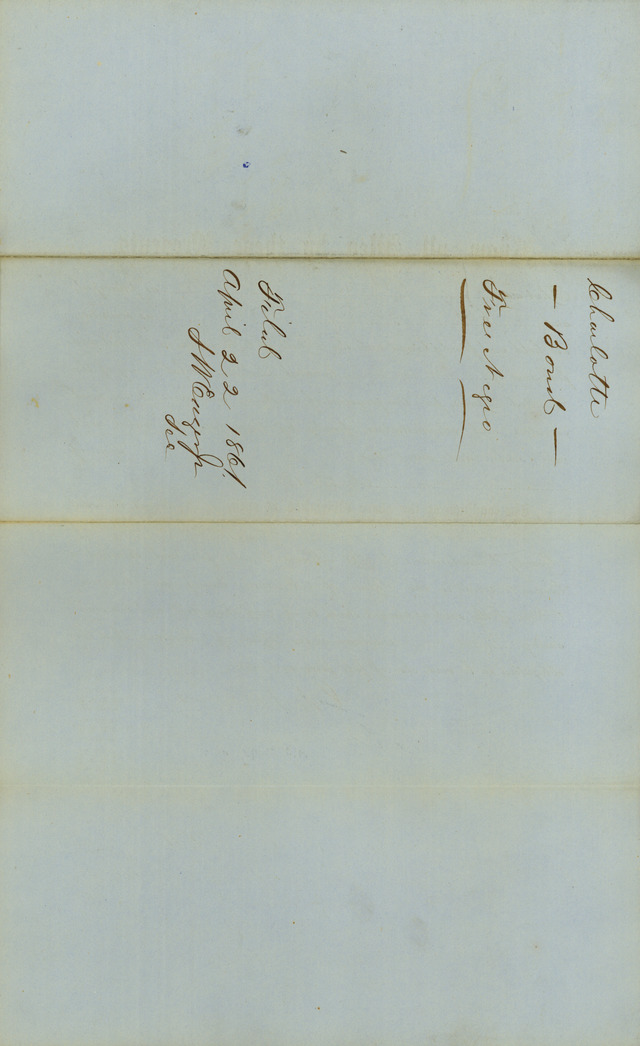 Charlotte
— Bond —
Free Negro
Filed
April 22 1861.